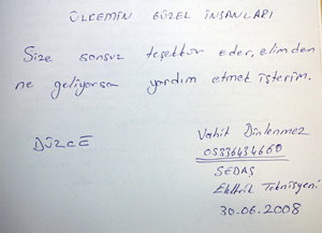 ÜLKEMİN GÜZEL İNSANLARI
Size sonsuz teşekkür eder, elimden
ne geliyorsa yardım etmek isterim.
DÜZCE
Vahit Dinlenmez
05536434660
SEDAŞ
Elektrik Teknisyeni
30.06.2008